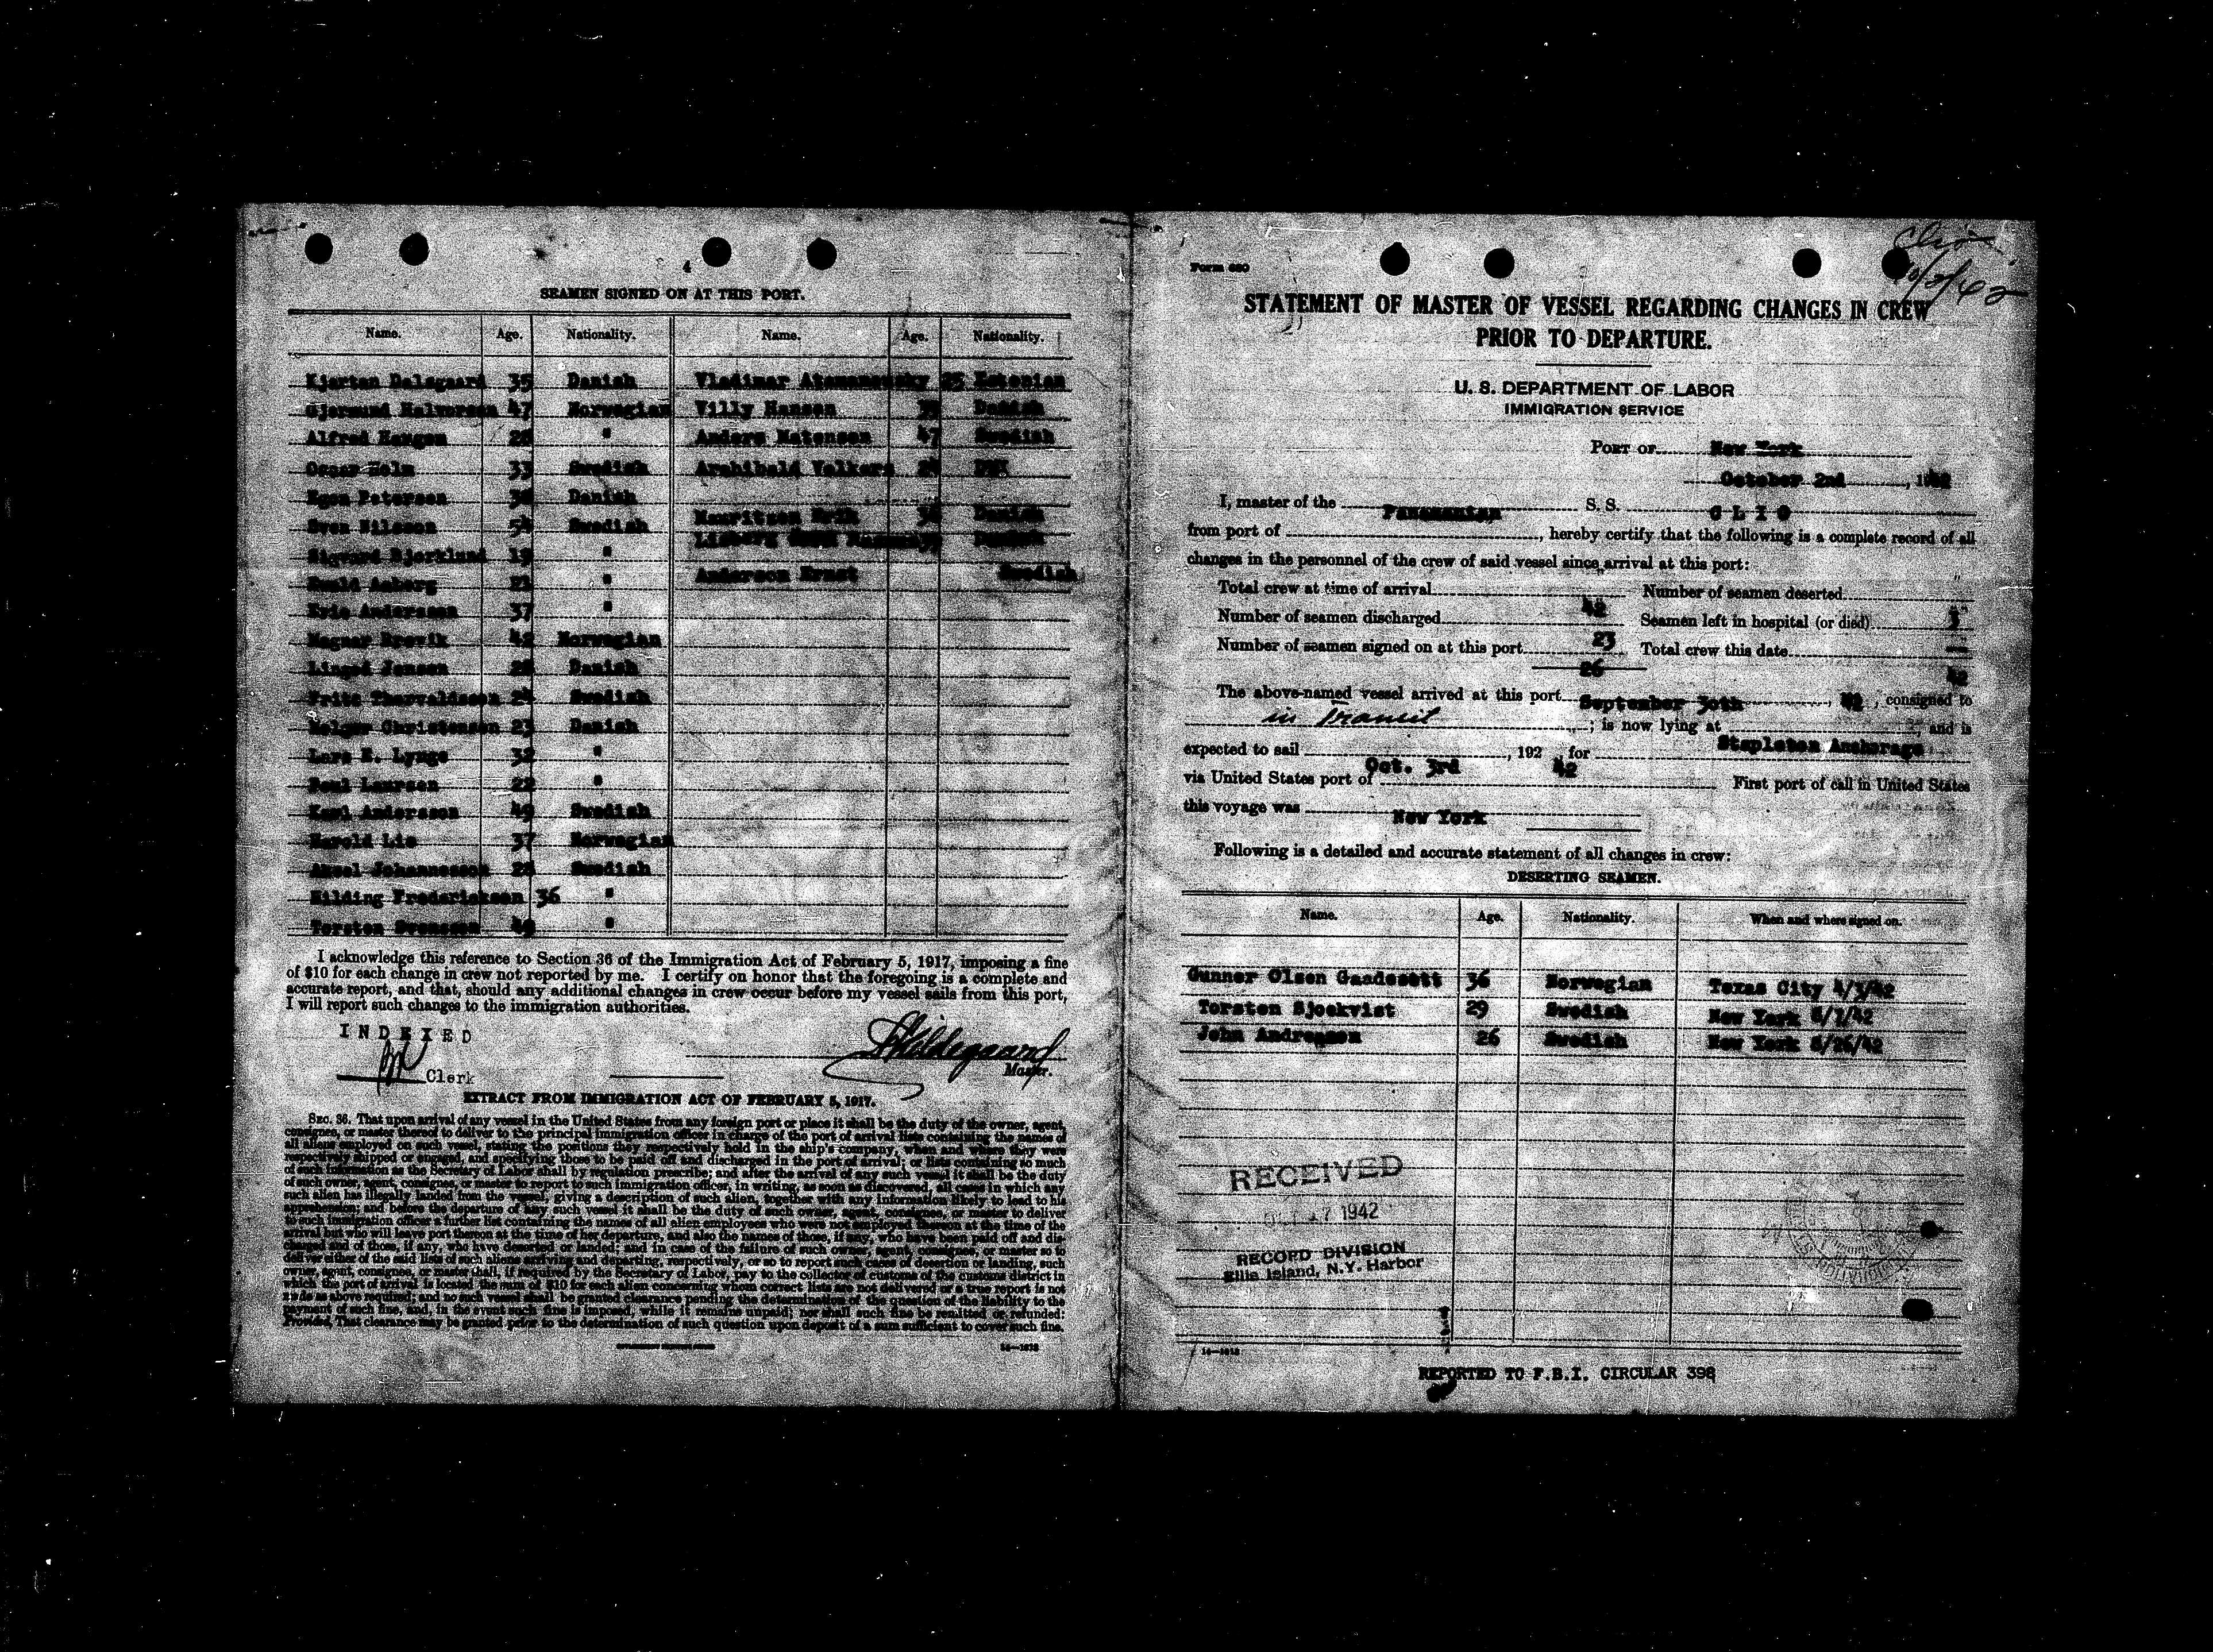 4
SEAMEN SIGNED ON AT THIS PORT.
Name. Age. Nationality. Name. Age. Nationality.
Kjartan Dalsgaard 35 Danish Vladimar 25 Estonian
Gjermund Halvorsen 47 Norwegian Willy Hansen Danish
Alfred Haugen 28 " Anders Matensen 47 Swedish
Oscar Holm 33 Swedish Archibald Volkers 24
Egon Petersen 38 Danish
Sven Nilsson 54 Swedish Mauritzen Erik 38 Danish
Sigvard Bjorklund 19 " Lisberg Danish
Roald Aaberg 21 " Anderson Ernst Swedish
Eric Andersson 37 "
Magnar Brovik 42 Norwegian
Jensen 28 Danish
Fritz Thorvaldsson 24 Swedish
Holger Christensen 23 Danish
Lars E. Lynge 32 "
Poul Laursen 22 "
Karl Andersson 49 Swedish
Harold Lie 37 Norwegian
Axsel Johannesson 28 Swedish
Hilding Frederiksson 36 "
Torsten Svensson 49 "
I acknowledge this reference to Section 36 of the Immigration Act of February 5, 1917, imposing a fine
of $10 for each change in crew not reported by me. I certify on honor that the foregoing is a complete and
accurate report, and that, should any additional changes in crew occur before my vessel sails from this port,
I will report such changes to the immigration authorities.
INDEXED
Clerk
Hildegaard
Master.
EXTRACT FROM IMMIGRATION ACT OF FEBRUARY 5, 1917.
SEC. 36. That upon arrival of any vessel in the United States from any foreign port or place it shall be the duty of the owner, agent,
consignee, or master thereof to deliver to the principal immigration officer in charge of the port of arrival lists containing the names of
all aliens employed on such vessel, stating the positions they respectively hold in the ship's company, when and where they were
respectively shipped or engaged, and specifying those to be paid off and discharged in the port of arrival; or lists containing so much
of such information as the Secretary of Labor shall by regulation prescribe; and after the arrival of any such vessel it shall be the duty
of such owner, agent, consignee, or master to report to such immigration officer, in writing, as soon as discovered, all cases in which any
such alien has illegally landed from the vessel, giving a description of such alien, together with any information likely to lead to his
apprehension; and before the departure of any such vessel it shall be the duty of such owner, agent, consignee, or master to deliver
to such immigration officer a further list containing the names of all alien employees who were not employed thereon at the time of the
arrival but who will leave port thereon at the time of her departure, and also the names of those, if any, who have been paid off and dis-
charged and of those, if any, who have deserted or landed; and in case of the failure of such owner, agent, consignee, or master so to
deliver either of the said lists of such aliens arriving and departing, respectively, or so to report such cases of desertion or landing, such
owner, agent, consignee, or master shall, if required by the Secretary of Labor, pay to the collector of customs of the customs district in
which the port of arrival is located the sum of $10 for each alien concerning whom correct lists are not delivered or a true report is not
made as above required; and no such vessel shall be granted clearance pending the determination of the question of the liability to the
payment of such fine, and, in the event such fine is imposed, while it remains unpaid; nor shall such fine be remitted or refunded:
Provided, That clearance may be granted prior to the determination of such question upon deposit of a sum sufficient to cover such fine.
14—1618
Clio
10/2/42
Form 680
STATEMENT OF MASTER OF VESSEL REGARDING CHANGES IN CREW
PRIOR TO DEPARTURE.
U. S. DEPARTMENT OF LABOR
IMMIGRATION SERVICE
PORT OF New York
October 2nd, 1942
I, master of the Panamanian S. S. C L I O
from port of , hereby certify that the following is a complete record of all
changes in the personnel of the crew of said vessel since arrival at this port:
Total crew at time of arrival 42 Number of seamen deserted 3
Number of seamen discharged 23 Seamen left in hospital (or died) —
Number of seamen signed on at this port 26 Total crew this date 42
The above-named vessel arrived at this port September 30th, 42, consigned to
in Transit; is now lying at Stapleton Anchorage and is
expected to sail Oct. 3rd, 192 42 for
via United States port of First port of call in United States
this voyage was New York
Following is a detailed and accurate statement of all changes in crew:
DESERTING SEAMEN.
Name. Age. Nationality. When and where signed on.
Gunner Olsen Gaadesett 36 Norwegian Texas City 4/3/42
Torsten Sjoekvist 29 Swedish New York 8/7/42
John Andreasen 26 Swedish New York 8/26/42
RECEIVED
OCT 17 1942
RECORD DIVISION
Ellis Island, N.Y. Harbor
14—1618
REPORTED TO F.B.I. CIRCULAR 398